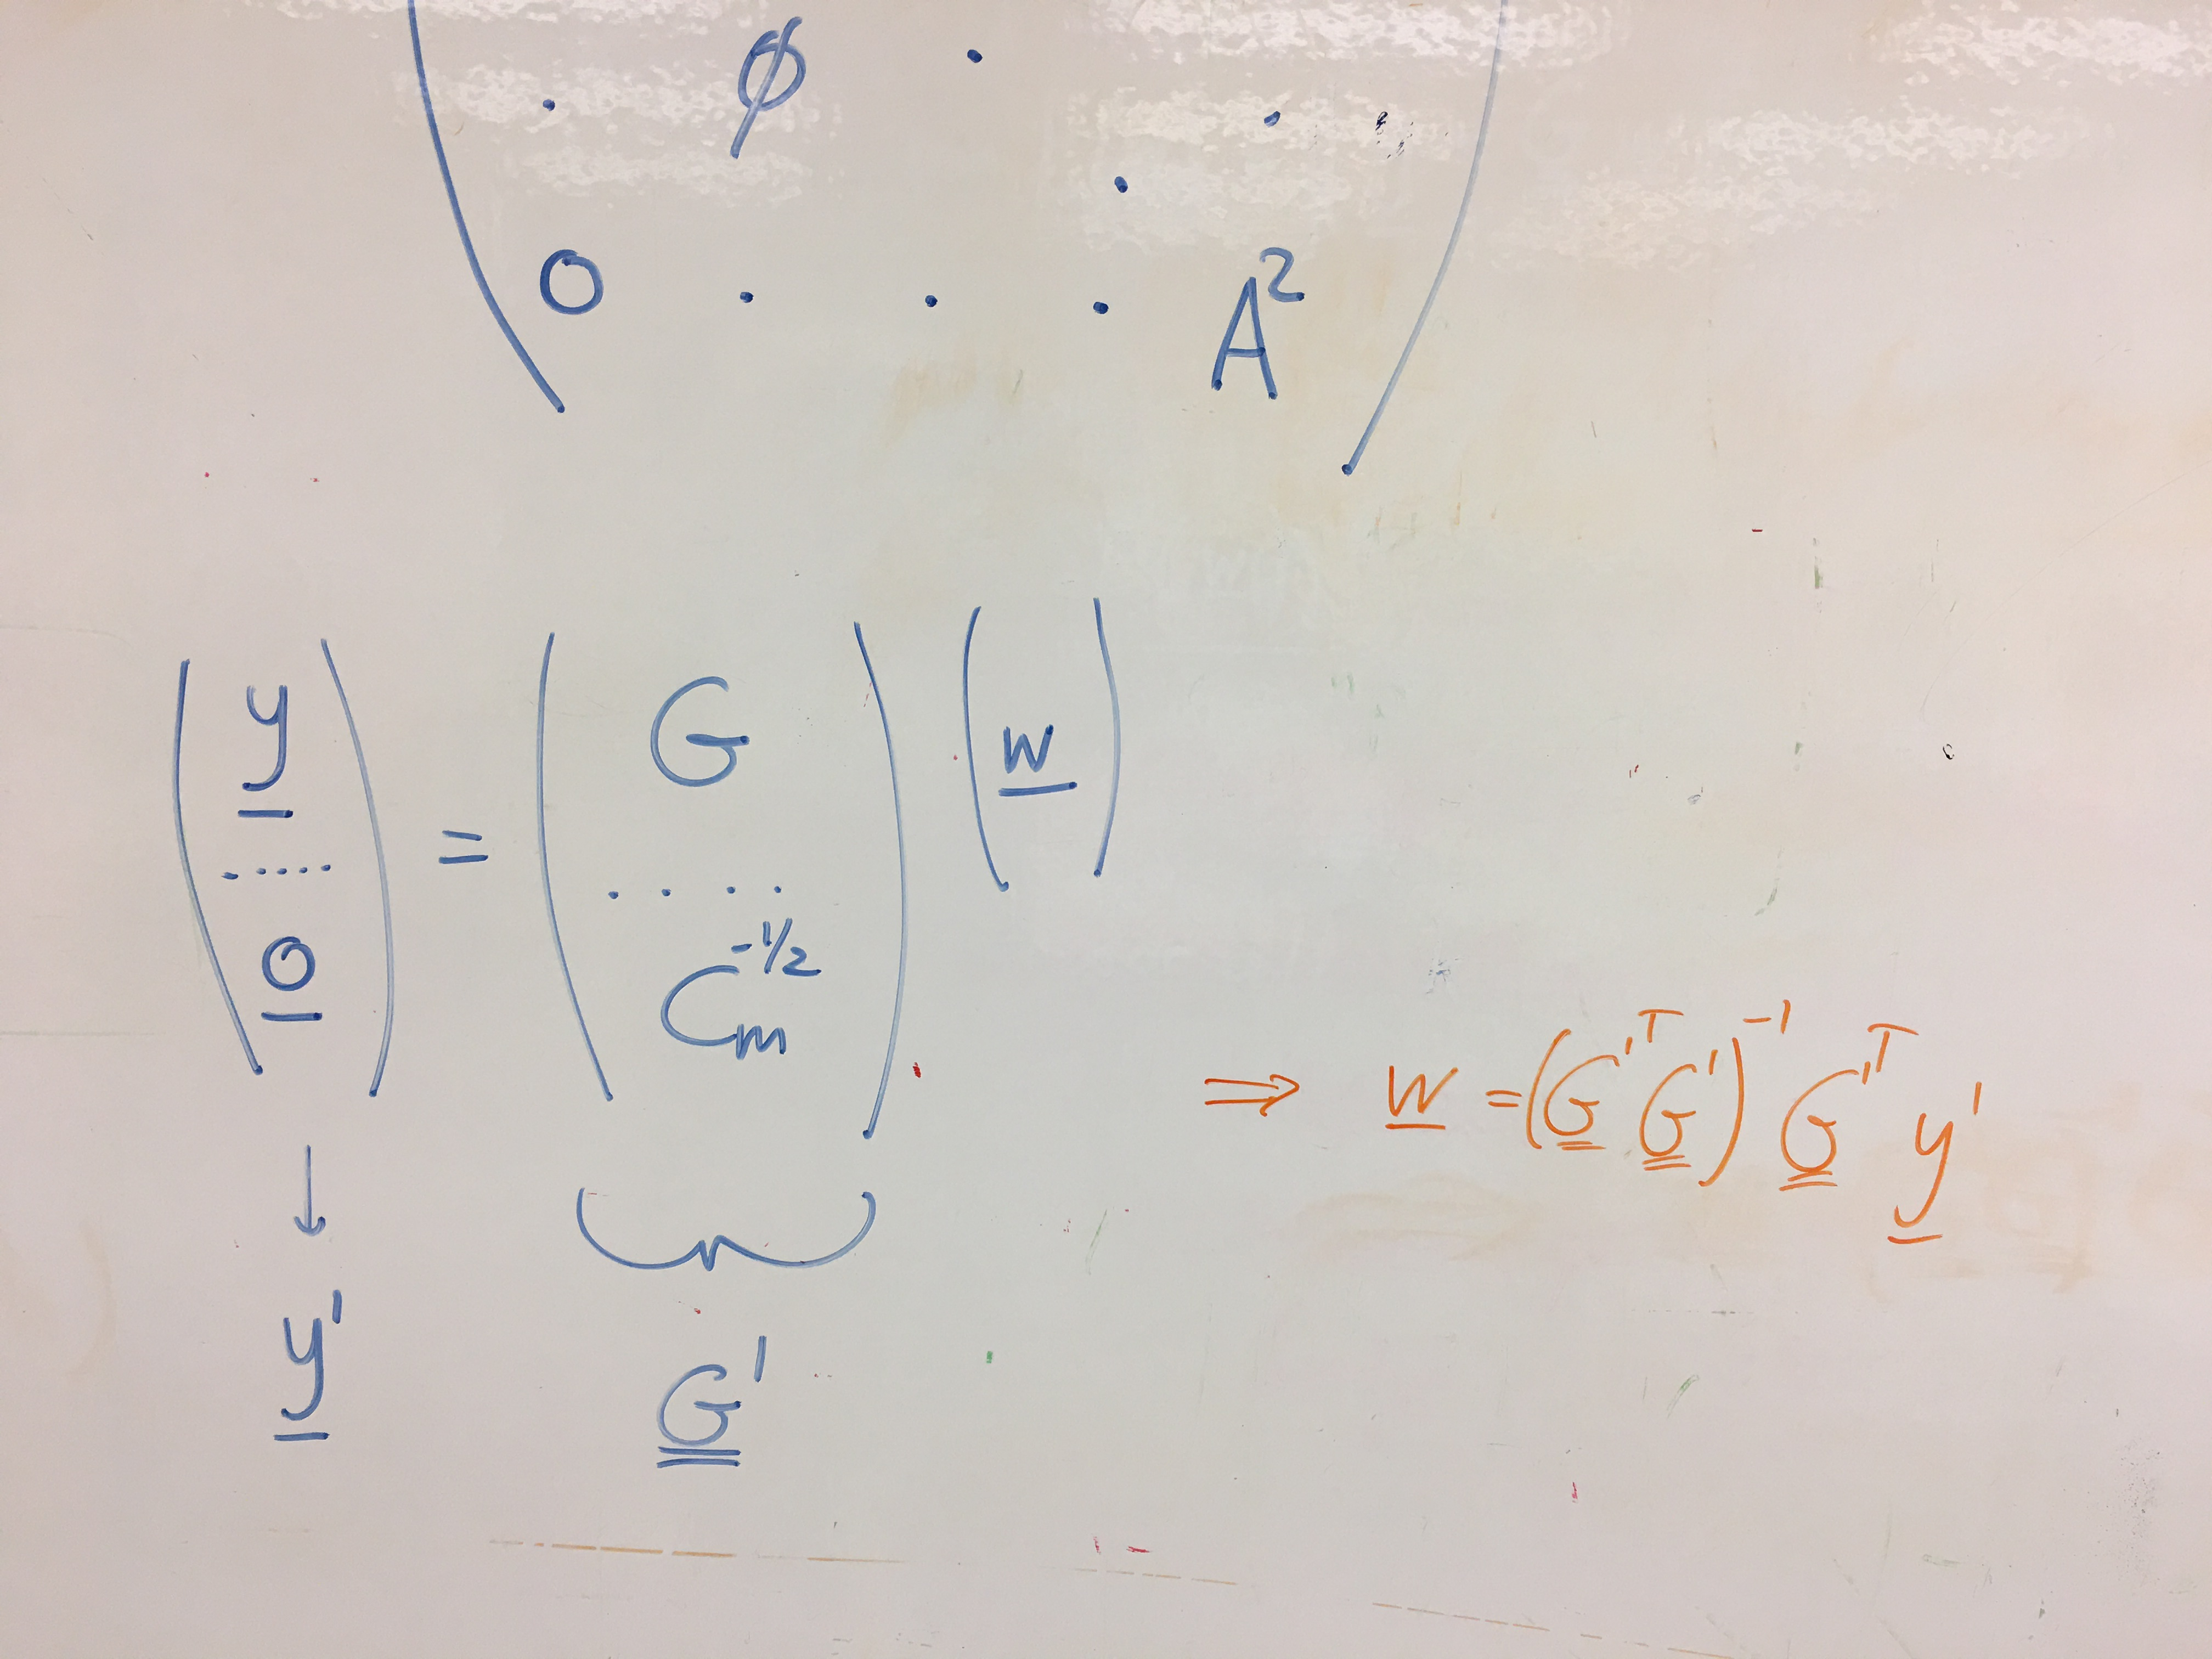 . ϕ . .
.
0 . . . A²
( y ..... 0 ) = ( G .... Cₘ^{-1/2} ) ( w )
⇒ w = (G'ᵀ G')⁻¹ G'ᵀ y'
↓
y' G'